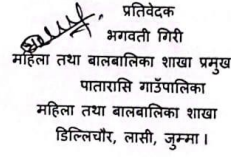 प्रतिवेदक
भगवती गिरी
महिला तथा बालबालिका शाखा प्रमुख
पातारासि गाउँपालिका
महिला तथा बालबालिका शाखा
डिल्लिचौर, लासी, जुम्मा ।